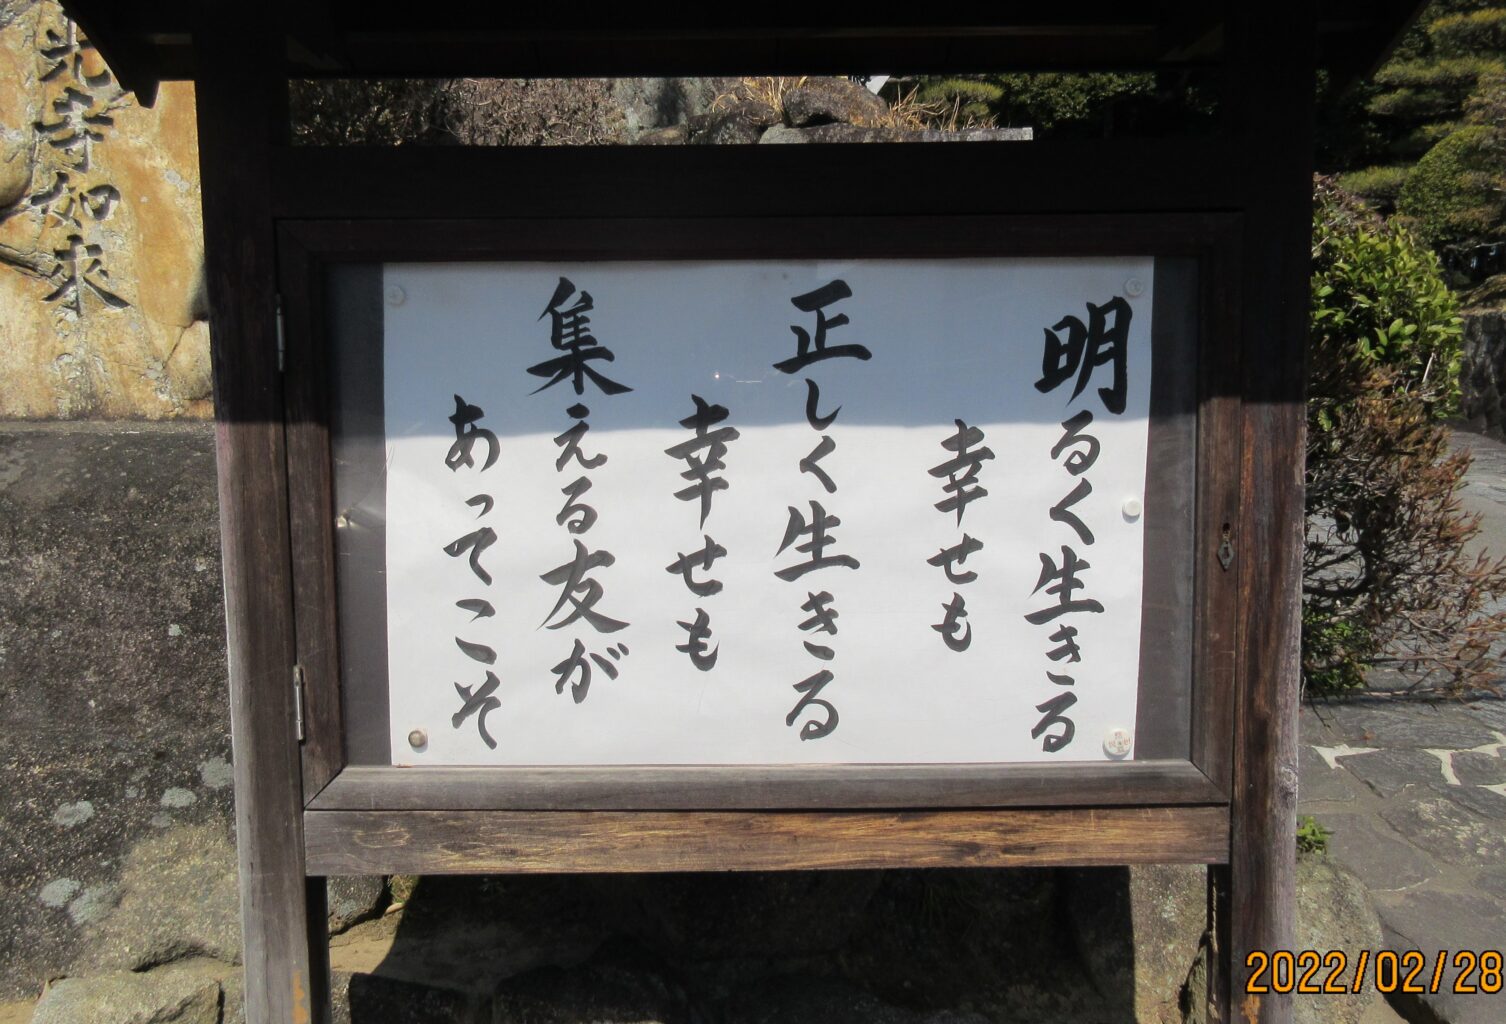 明るく生きる
幸せも
正しく生きる
幸せも
集える友が
あってこそ
光寺如来
2022/02/28